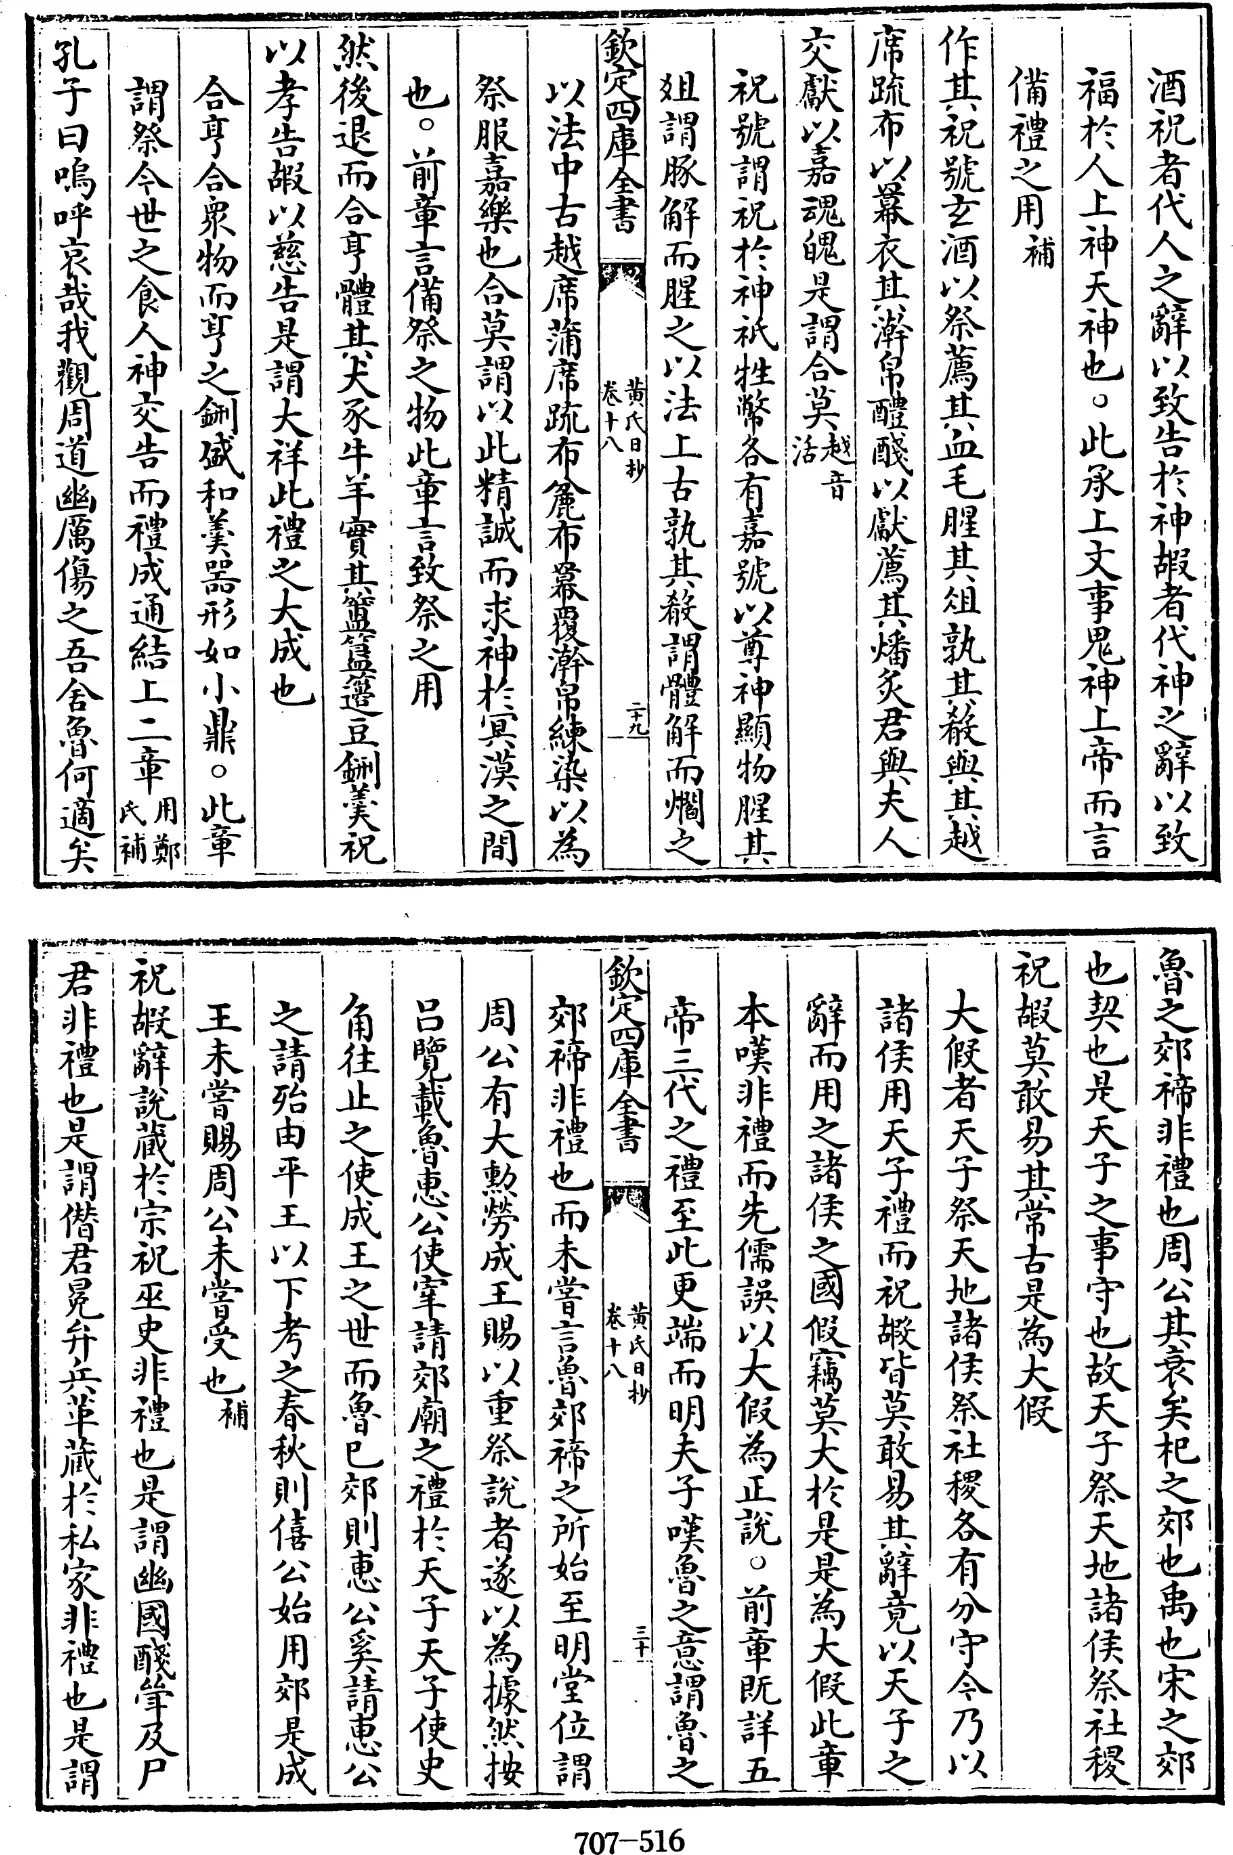 酒祝者代人之辭以致告於神嘏者代神之辭以致
福於人上神天神也○此承上文事鬼神上帝而言
備禮之用補
作其祝號玄酒以祭薦其血毛腥其俎孰其殽與其越
席疏布以冪衣其澣帛醴醆以獻薦其燔炙君與夫人
交獻以嘉魂魄是謂合莫越音活
祝號謂祝於神祇牲幣各有嘉號以尊神顯物腥其
俎謂豚解而腥之以法上古孰其殽謂體解而爓之
欽定四庫全書
黃氏日抄
卷十八
二十九
以法中古越席蒲席疏布麄布冪覆澣帛練染以為
祭服嘉樂也合莫謂以此精誠而求神於冥漠之間
也○前章言備祭之物此章言致祭之用
然後退而合亨體其犬豕牛羊實其簠簋籩豆鉶羹祝
以孝告嘏以慈告是謂大祥此禮之大成也
合亨合衆物而亨之鉶盛和羹器形如小鼎○此章
謂祭今世之食人神交告而禮成通結上二章用鄭氏補
孔子曰嗚呼哀哉我觀周道幽厲傷之吾舍魯何適矣
魯之郊禘非禮也周公其衰矣杞之郊也禹也宋之郊
也契也是天子之事守也故天子祭天地諸侯祭社稷
祝嘏莫敢易其常古是為大假
大假者天子祭天地諸侯祭社稷各有分守今乃以
諸侯用天子禮而祝嘏皆莫敢易其辭竟以天子之
辭而用之諸侯之國假竊莫大於是是為大假此章
本嘆非禮而先儒誤以大假為正說○前章既詳五
帝三代之禮至此更端而明夫子嘆魯之意謂魯之
欽定四庫全書
黃氏日抄
卷十八
三十
郊禘非禮也而未嘗言魯郊禘之所始至明堂位謂
周公有大勲勞成王賜以重祭說者遂以為據然按
吕覽載魯惠公使宰請郊廟之禮於天子天子使史
角往止之使成王之世而魯已郊則惠公奚請惠公
之請殆由平王以下考之春秋則僖公始用郊是成
王未嘗賜周公未嘗受也補
祝嘏辭說藏於宗祝巫史非禮也是謂幽國醆斚及尸
君非禮也是謂僭君冕弁兵革藏於私家非禮也是謂
707-516